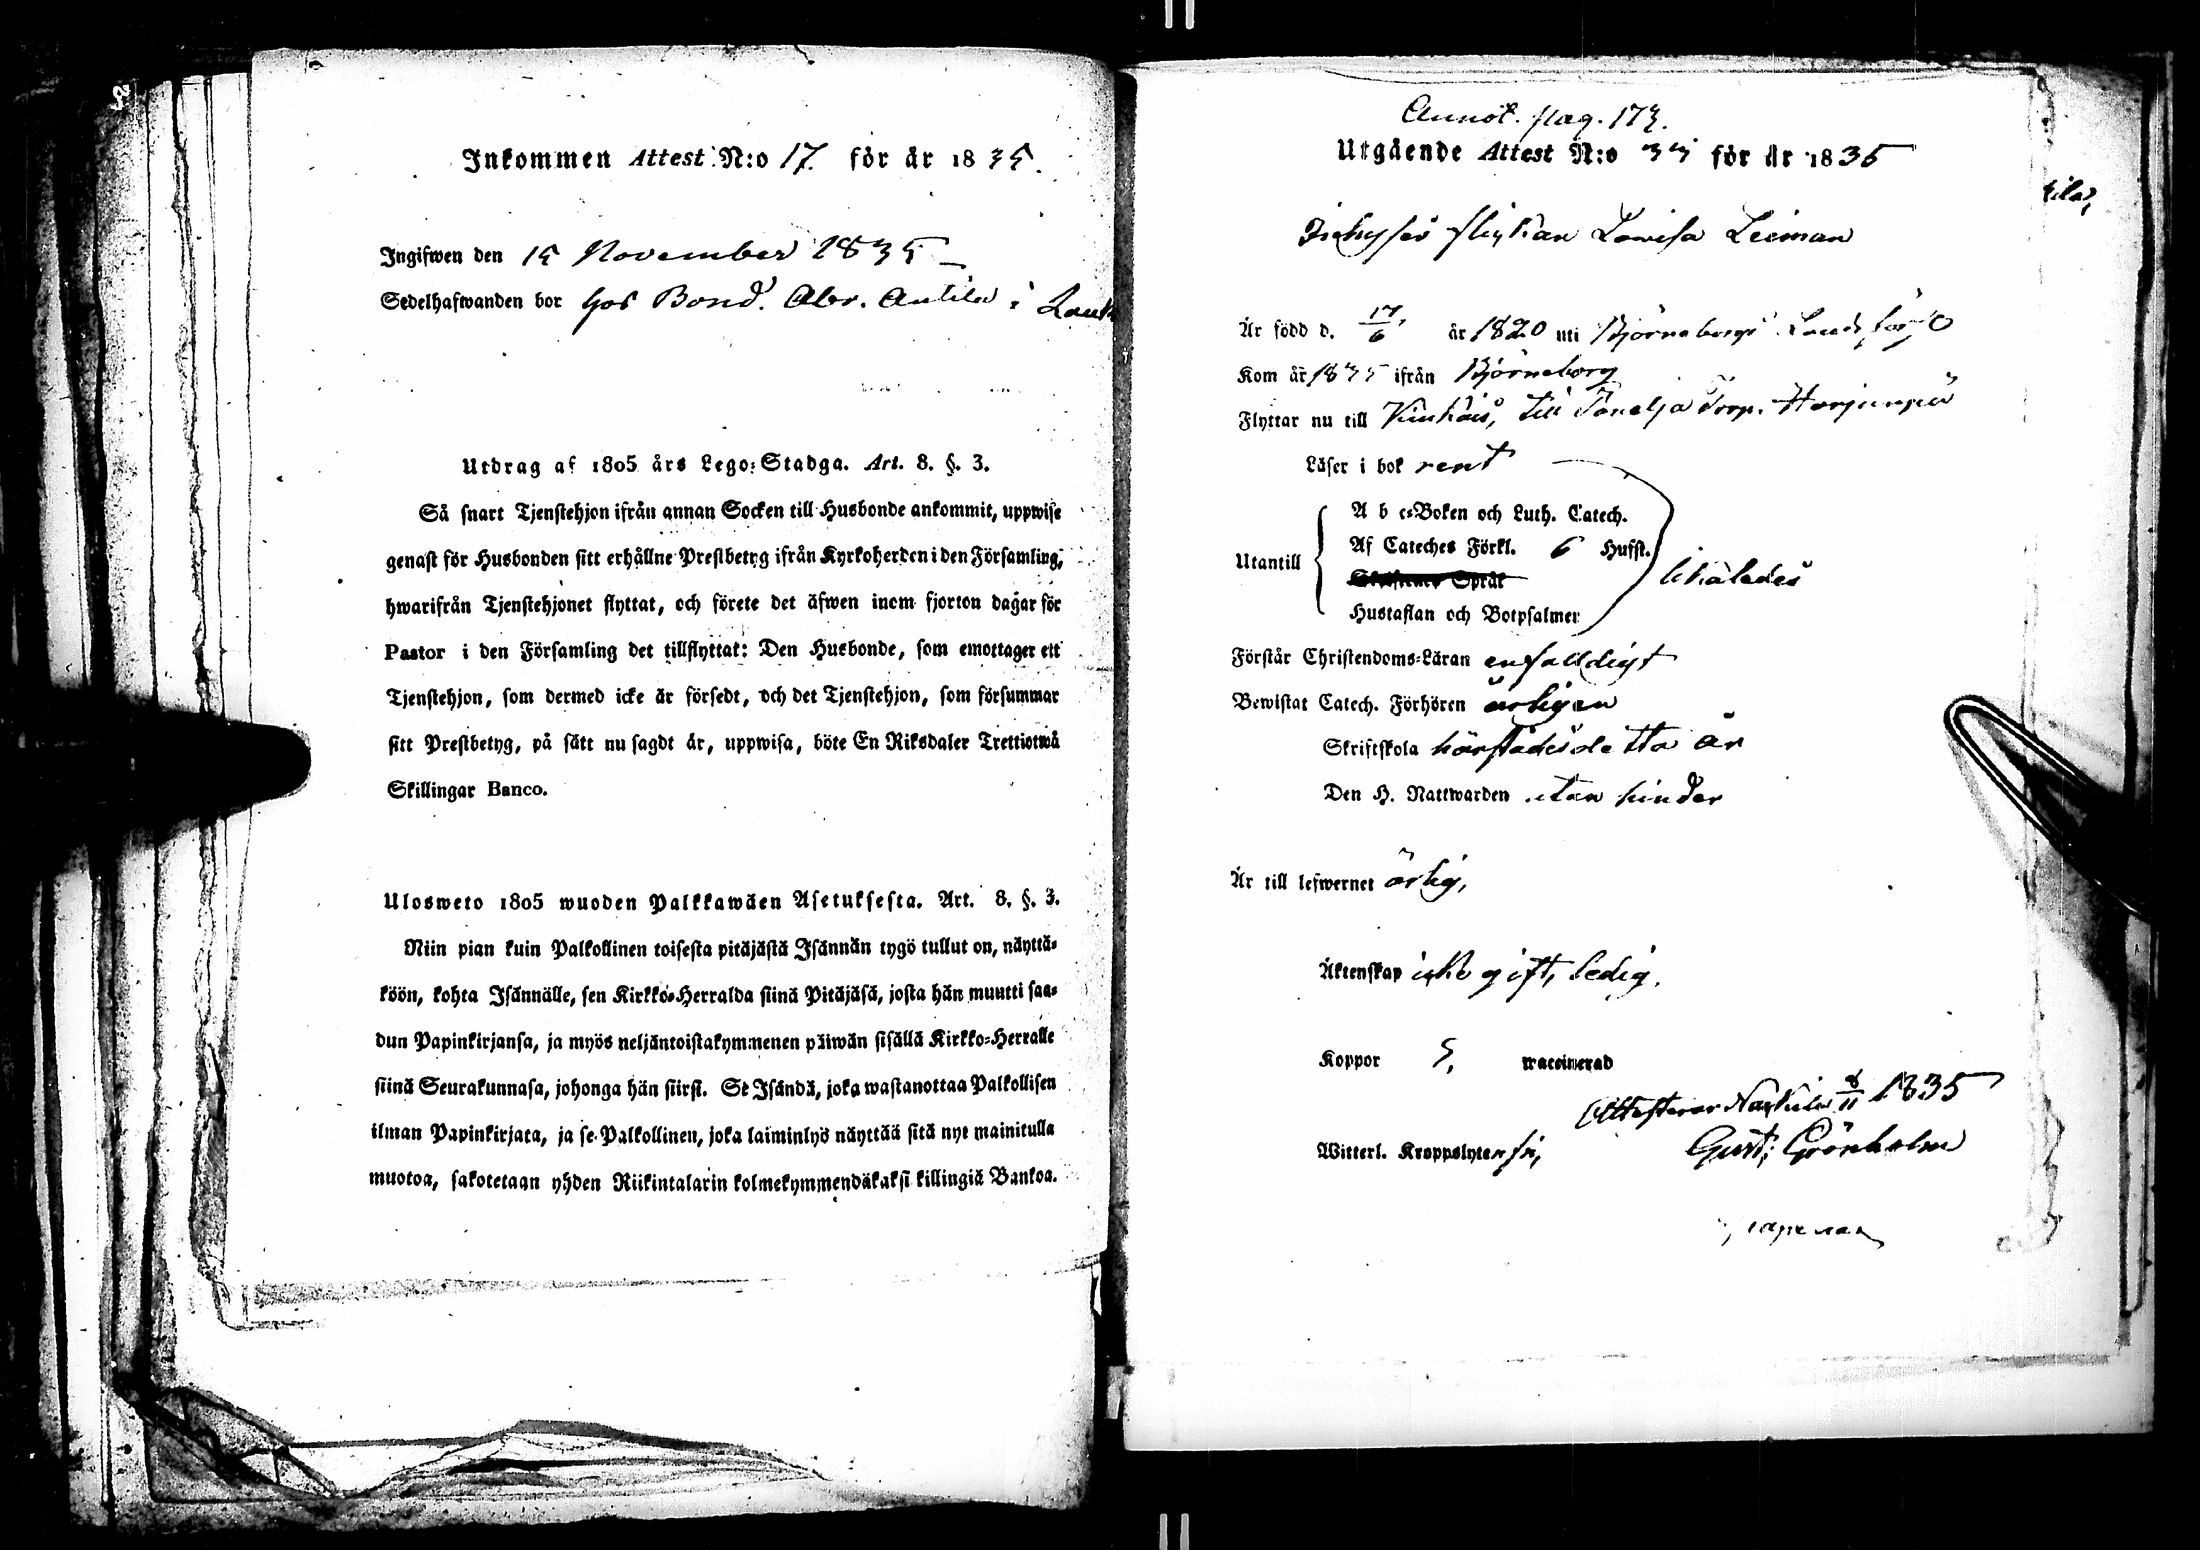 Inkommen Attest N:o 17. för år 1835.
Ingifwen den 15 November 1835
Sedelhafwanden bor hos Bond. Abr. Antila i
Utdrag af 1805 års Lego-Stadga. Art. 8. §. 3.
Så snart Tjenstehjon ifrån annan Socken till Husbonde ankommit, uppwise
genast för Husbonden sitt erhållne Prestbetyg ifrån Kyrkoherden i den Församling,
hwarifrån Tjenstehjonet flyttat, och förete det äfwen inom fjorton dagar för
Pastor i den Församling det tillflyttat: Den Husbonde, som emottager ett
Tjenstehjon, som dermed icke är försedt, och det Tjenstehjon, som försummar
sitt Prestbetyg, på sätt nu sagdt är, uppwisa, böte En Riksdaler Trettiotwå
Skillingar Banco.
Ulosweto 1805 wuoden Palkkawäen Asetuksesta. Art. 8. §. 3.
Niin pian kuin Palkollinen toisesta pitäjästä Isännän tygö tullut on, näyttä-
köön, kohta Isännälle, sen Kirkko-Herralda siinä Pitäjäsä, josta hän muutti saa-
dun Papinkirjansa, ja myös neljäntoistakymmenen päiwän sisällä Kirkko-Herralle
siinä Seurakunnasa, johonga hän siirsi. Se Isändä, joka wastanottaa Palkollisen
ilman Papinkirjata, ja se Palkollinen, joka laiminlyö näyttää sitä nyt mainitulla
muotoa, sakotetaan yhden Riikintalarin kolmekymmendäkaksi killingiä Bankoa.
Annot. pag. 173.
Utgående Attest N:o 33 för år 1835
flickan Lowisa Leiman
Är född d. 17/6 år 1820 uti Björneborgs Lands
Kom år 1835 ifrån Björneborg
Flyttar nu till till Torp. Harjunpää
Läser i bok rent
A b c-Boken och Luth. Catech.
Af Cateches Förkl. 6 Hufst.
Utantill
Skriftenes Språk
likaledes
Hustaflan och Botpsalmer
Förstår Christendoms-Läran enfalldigt
Bewistat Catech. Förhören årligen
Skriftskola härstädes detta år
Den H. Nattwarden utan hinder
Är till lefwernet ärlig,
Äktenskap icke gift, ledig.
Koppor waccinerad
Attesterar 8/11 1835
Witterl. Kroppslyten
Gust: Grönholm